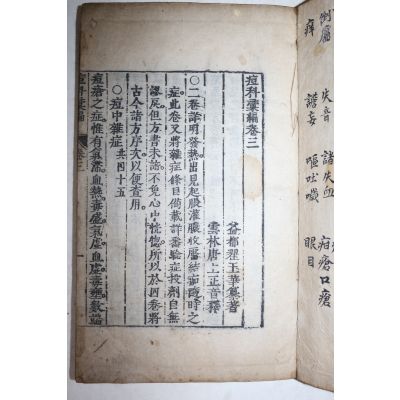 倒靨 失音 諸失血 疳瘡口瘡
痺 譫妄 嘔吐 眼目
痘科彙編卷三
益都翟玉華 著
雲林唐上正音釋
○二卷詳明發熱出見起脹灌膿收靨結痂時之
症此卷又將雜症條目備載詳審驗症投劑自無
謬戾但方書未諳不免心中恍惚所以於四卷將
古今諸方序次以便查用
○痘中雜症共四十五
痘瘡之症惟有氣滯血熱毒盛氣虛血虛毒壅數端
痘科彙編 卷三 一